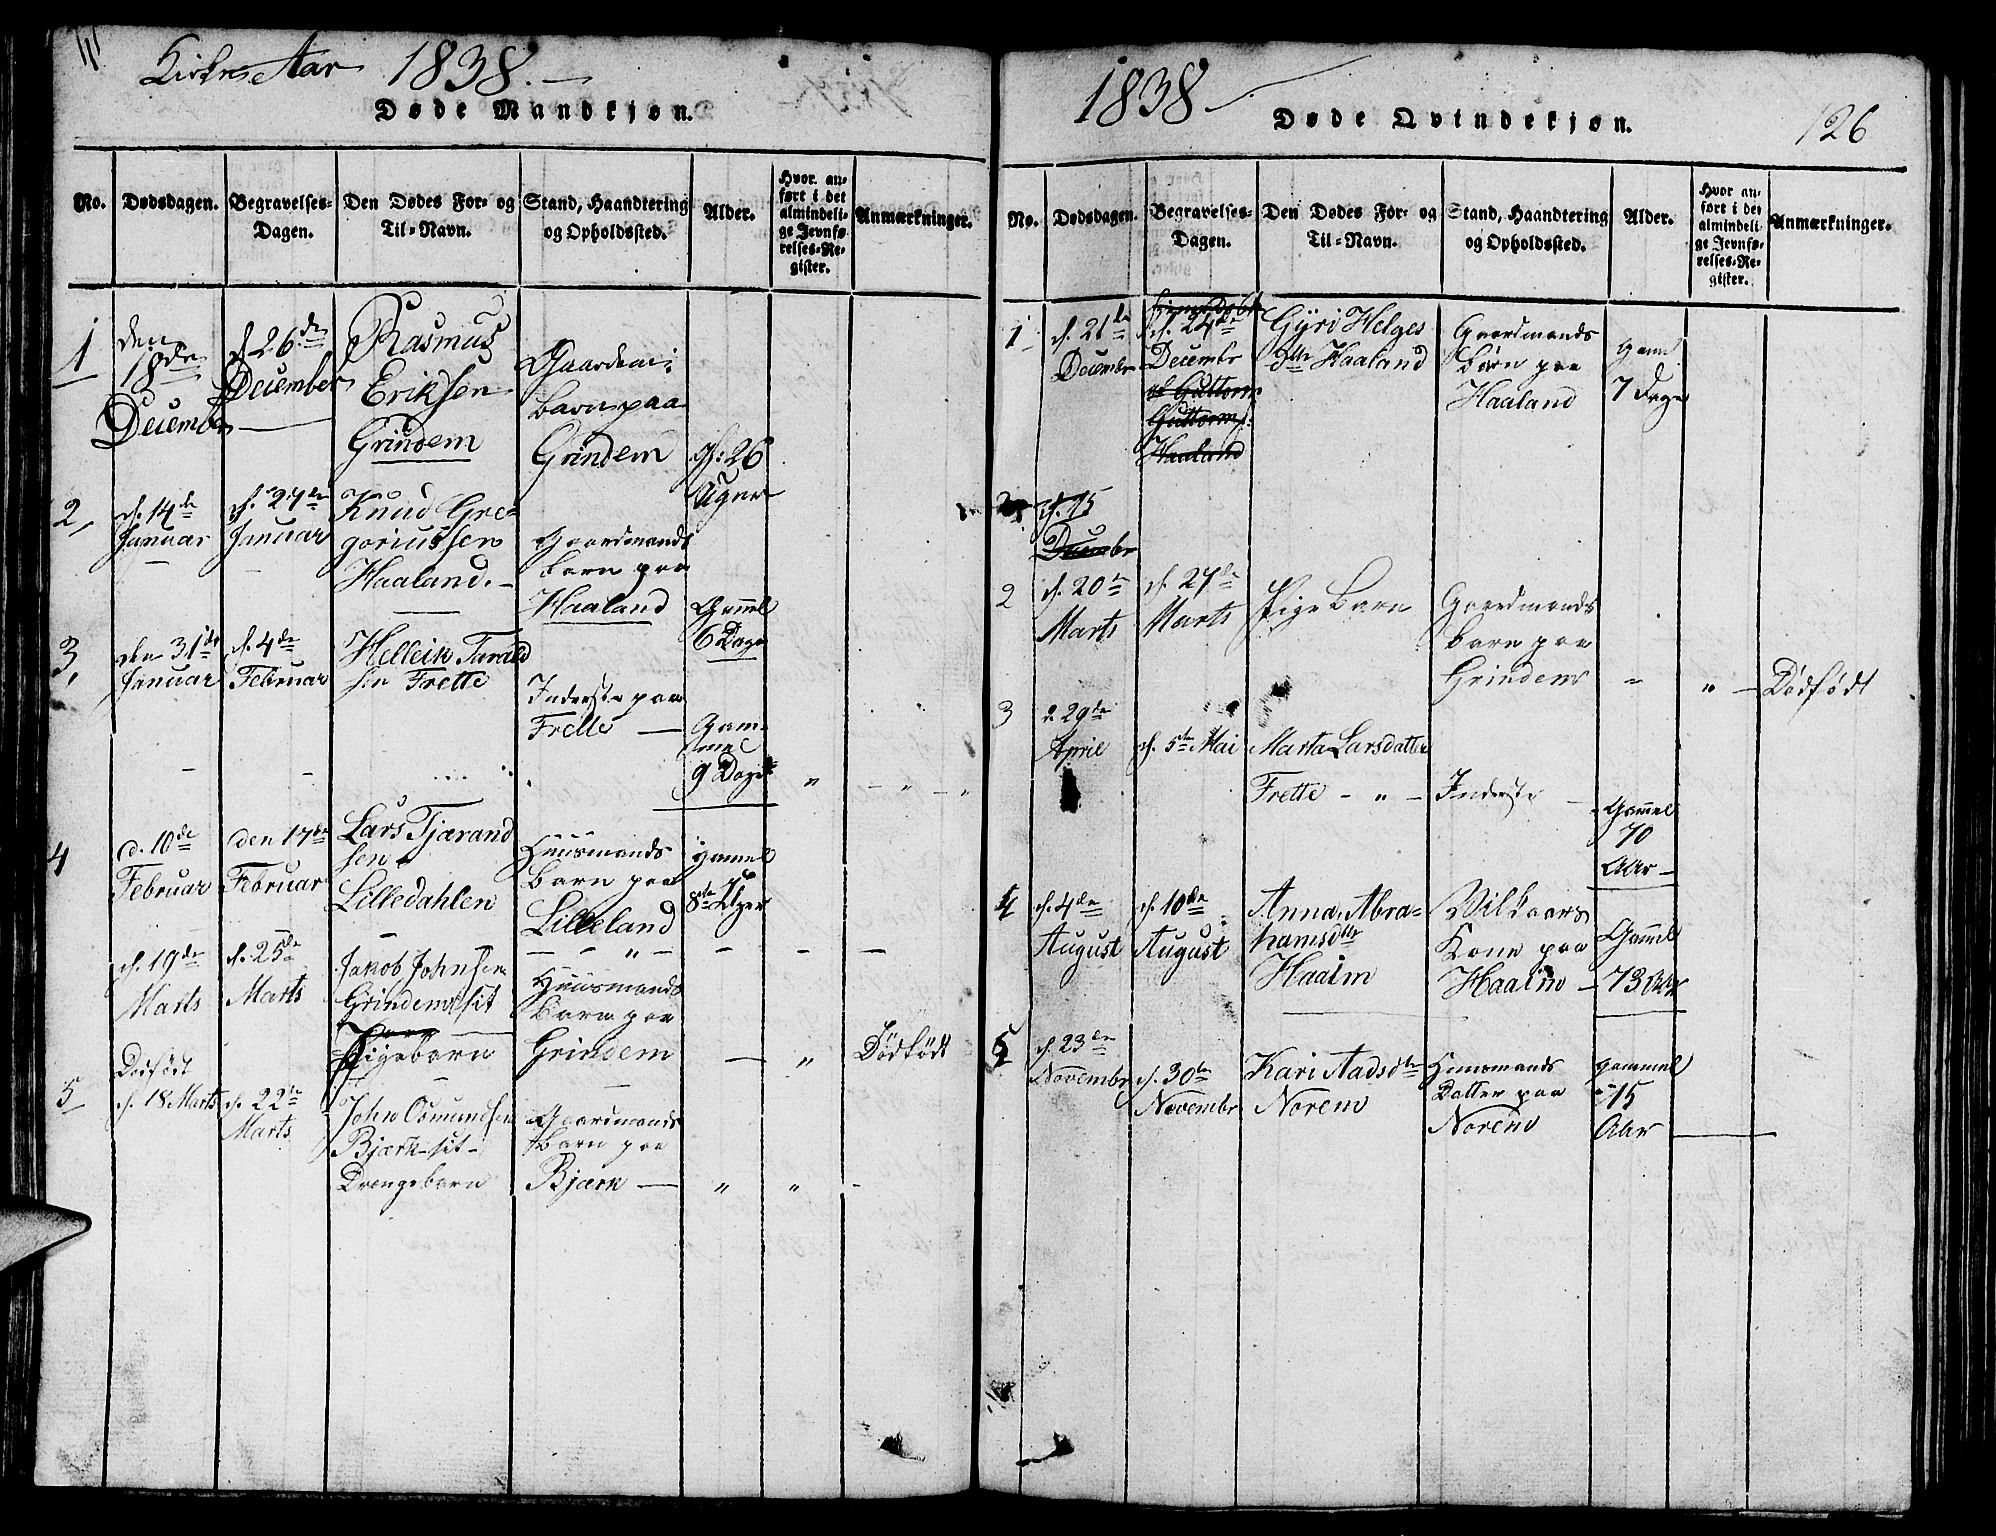 Kirke Aar 1838.
Døde Mandkjøn.
No.
Dødsdagen.
Begravelses-
Dagen.
Den Dødes For- og
Til-Navn.
Stand, Haandtering
og Opholdssted.
Alder.
Hvor. an-
ført i det
almindeli-
ge Jevnfø-
relses-Re-
gister.
Anmærkninger.
1
den
18de
December
d. 26de
December
Rasmus
Eriksen
Grindem
Gaardm:
barn paa
Grindem
Gl: 26
Uger
2
d. 14de
Januar
d. 27de
Januar
Knud Gre-
goriussen
Haaland.
Gaardmands
barn paa
Haaland
Gammel
6 Dage
3,
den 31de
Januar
d. 4de
Februar
Helleik Tarald
sen Frette
Inderste paa
Frette
Gam-
mel
9 Dage
4
d. 10de
Februar
den 17de
Februar
Lars Tjærand
sen
Lilledahlen
Huusmands
barn paa
Lilleland
gamel
8te Uger
d. 19de
Marts
d. 25de
Marts
Jakob Johnsen
Grindems sit
Pigebarn
Huusmands
barn paa
Grindem
Dødfødt
Dødfødt
5
d. 18 Marts
d. 22de
Marts
John Osmundsen
Bjærk - sit
Drengebarn
Gaardmands
barn paa
Bjærk
1838
Døde Qvindekjøn.
126
No.
Dødsdagen.
Begravelses-
Dagen.
Den Dødes For- og
Til-Navn.
Stand, Haandtering
og Opholdssted.
Alder.
Hvor an-
ført i det
almindeli-
ge Jevnfø-
relses-Re-
gister.
Anmærkninger.
1
d. 21de
December
d. 24de
Decembr
Guttorm
Guttorms:
Haaland
Gyri Helges
dttr Haaland
Gaardmands
barn paa
Haaland
Gaml
7 Dage
2
d. 15
Decembr
2
d. 20de
Marts
d. 27de
Marts
Pige Barn
Gaardmands
barn paa
Grindem
Dødfødt
3
d. 29de
April
d. 5te Mai
Marta Larsdatter
Frette
Inderste
Gammel
70
Aar
4
d. 4de
August
d. 10de
August
Anna Abra-
hamsdttr
Haaim
Vilkaars
Kone paa
Haaim
Gammel
73 Aar
5
d. 23de
Novembr
d. 30te
Novembr
Kari Aadsdtr
Norem
Huusmands
Datter paa
Norem
gammel
15
Aar